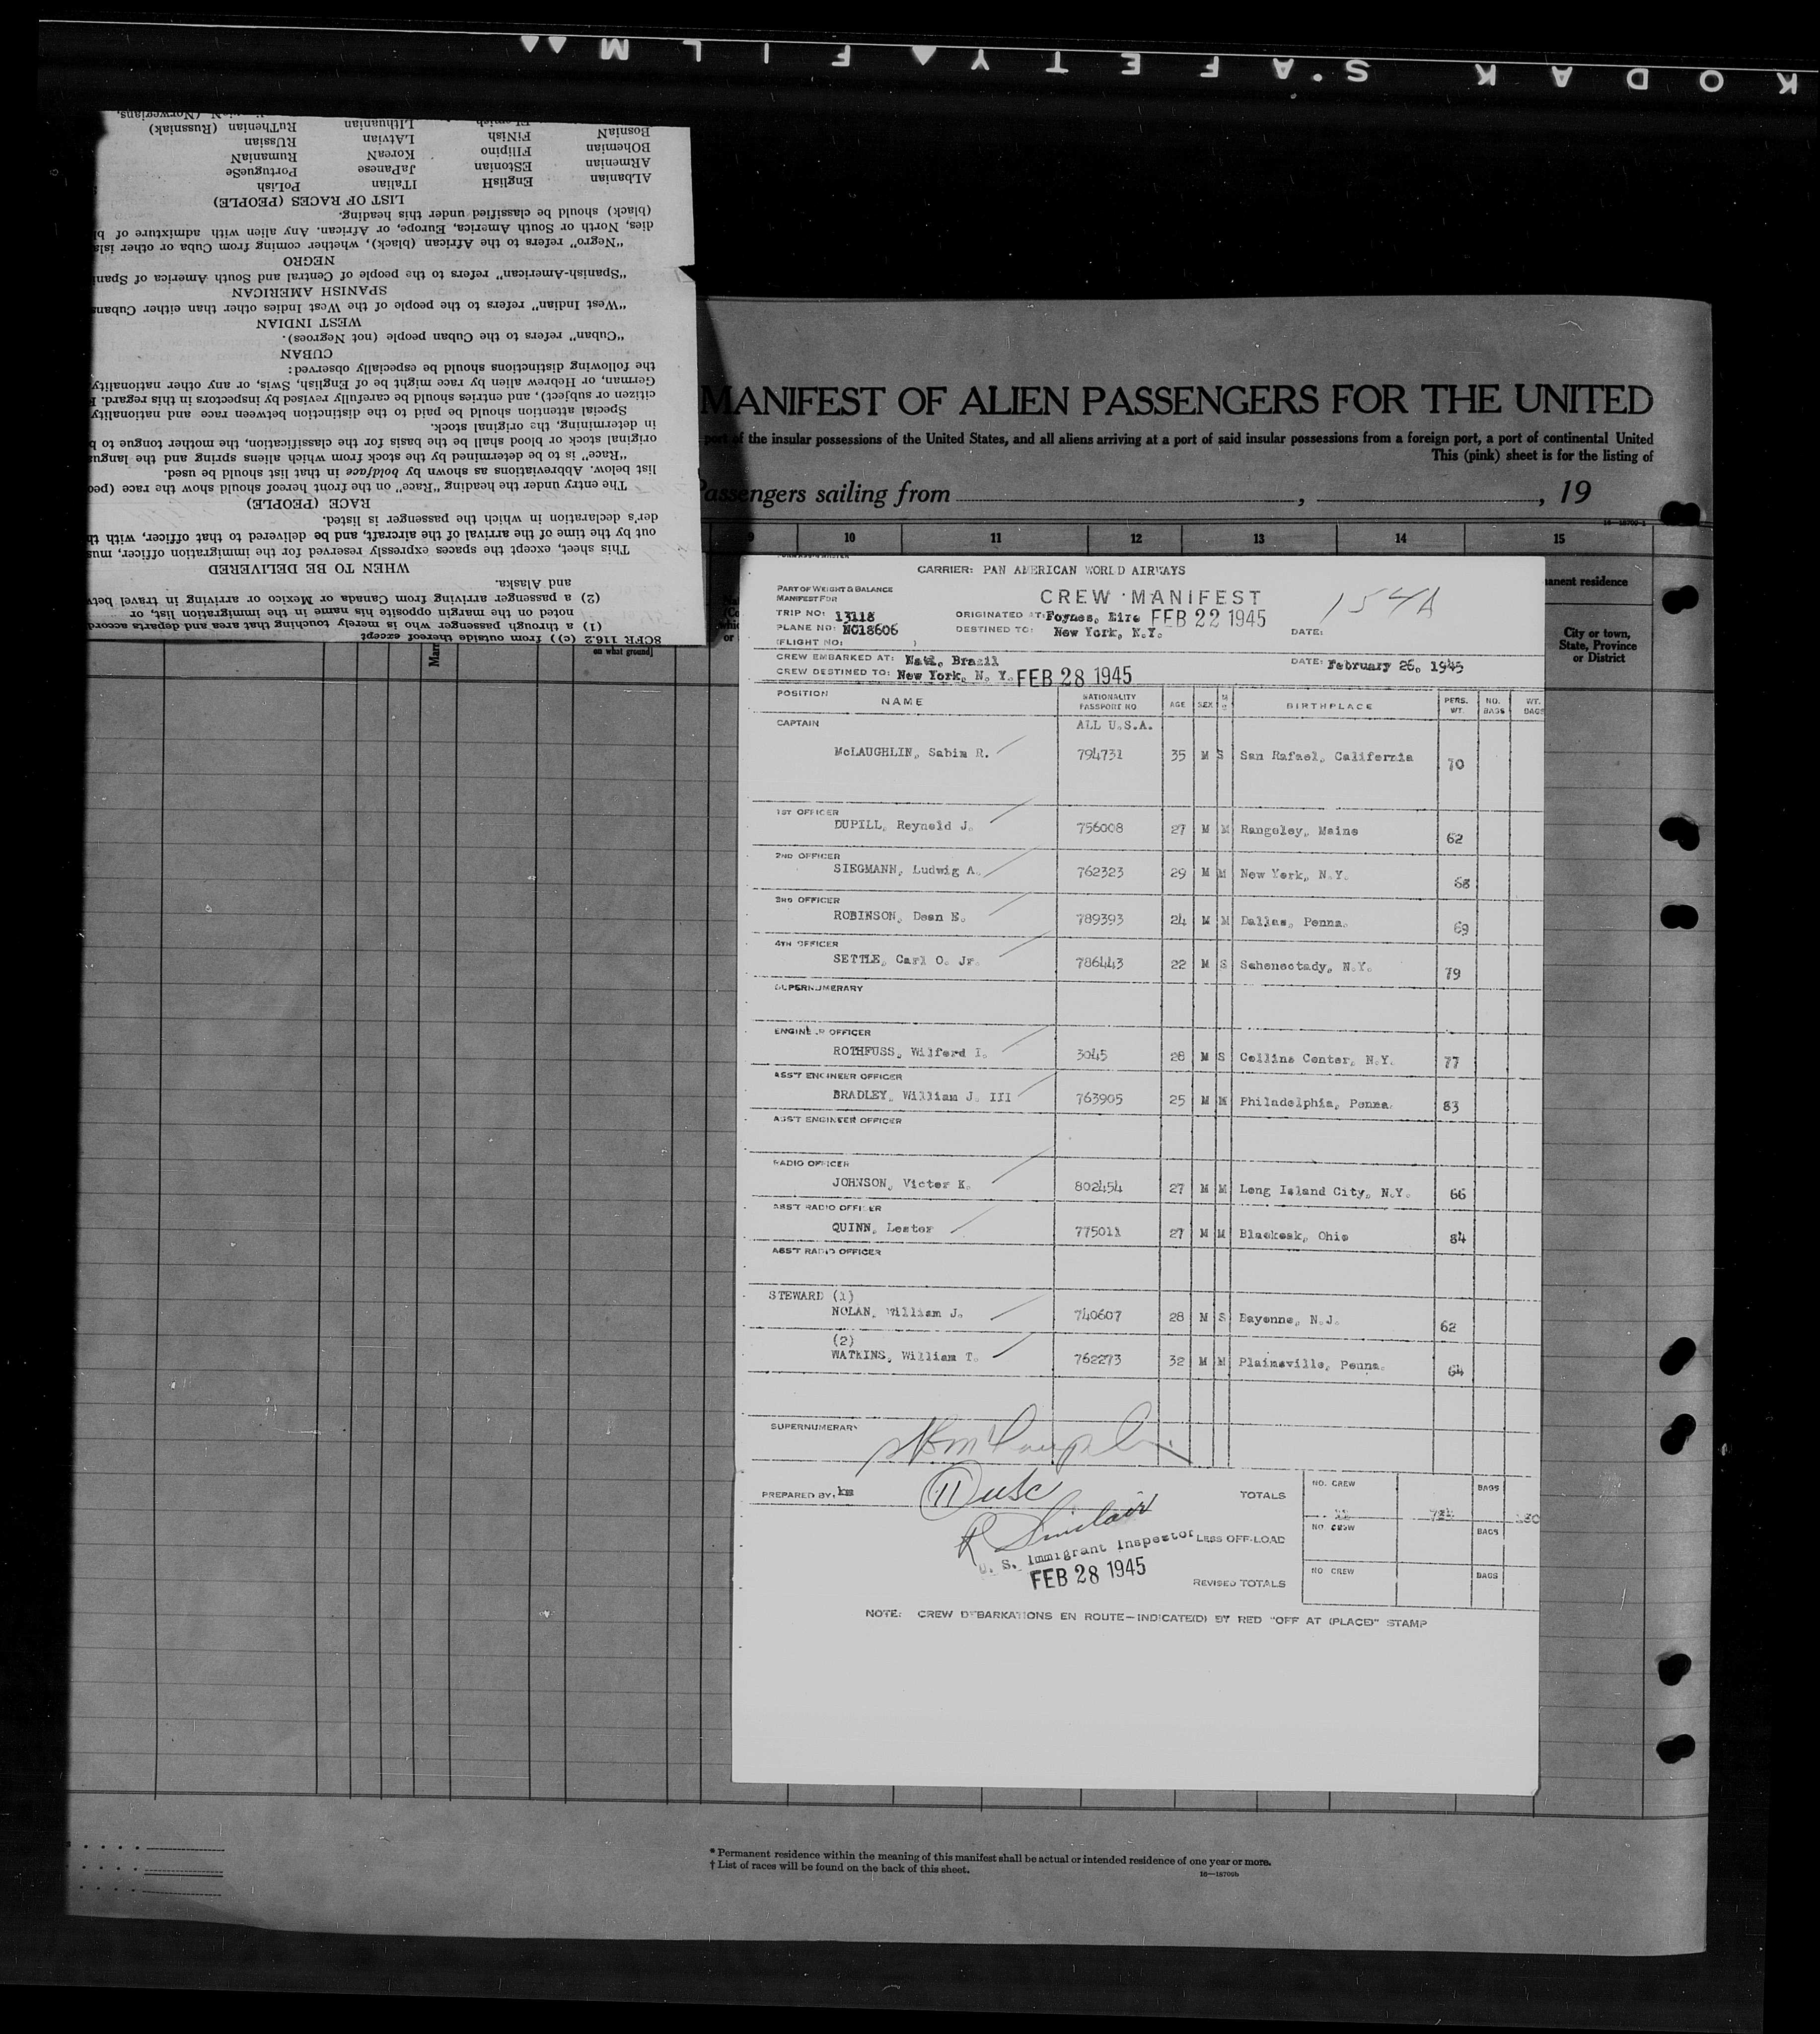 KODAK SAFETY FILM
8CFR 116.2 (c)) from outside thereof except
(1) a through passenger who is merely touching that area and departs
noted on the margin opposite his name in the immigration list, or
(2) a passenger arriving from Canada or Mexico or arriving in travel
and Alaska.
WHEN TO BE DELIVERED
This sheet, except the spaces expressly reserved for the immigration officer,
out by the time of the arrival of the aircraft, and be delivered to that officer, with
der's declaration in which the passenger is listed.
RACE (PEOPLE)
The entry under the heading "Race" on the front hereof should show the race
list below. Abbreviations as shown by boldface in that list should be used.
"Race" is to be determined by the stock from which aliens spring and the
original stock or blood shall be the basis for the classification, the mother tongue to
in determining, the original stock.
Special attention should be paid to the distinction between race and nationality
citizen or subject), and entries should be carefully revised by inspectors in this regard.
German, or Hebrew alien by race might be of English, Swis, or any other nationality
the following distinctions should be especially observed:
CUBAN
"Cuban" refers to the Cuban people (not Negroes).
WEST INDIAN
"West Indian" refers to the people of the West Indies other than either
SPANISH AMERICAN
"Spanish-American" refers to the people of Central and South America of
NEGRO
"Negro" refers to the African (black), whether coming from Cuba or other
dies, North or South America, Europe, or African. Any alien with admixture of
(black) should be classified under this heading.
LIST OF RACES (PEOPLE)
ALbanian EnglisH ITalian PoLish
ARmenian EStonian JaPanese PortugueSe
BOhemian FIlipino KoreaN RumaniaN
BosniaN FiNish LAtvian RUssian
LIthuanian RuThenian (Russniak)
MANIFEST OF ALIEN PASSENGERS FOR THE UNITED
port of the insular possessions of the United States, and all aliens arriving at a port of said insular possessions from a foreign port, a port of continental United
This (pink) sheet is for the listing of
Passengers sailing from , , 19
9 10 11 12 13 14 15
on what ground]
permanent residence
City or town,
State, Province
or District
CARRIER: PAN AMERICAN WORLD AIRWAYS
PART OF WEIGHT & BALANCE
MANIFEST FOR
CREW MANIFEST
154A
TRIP NO: 13118 ORIGINATED AT: Foynes, Eire FEB 22 1945
PLANE NO: NC18606 DESTINED TO: New York, N.Y. DATE:
(FLIGHT NO: )
CREW EMBARKED AT: Natl, Brazil DATE: February 26, 1945
CREW DESTINED TO: New York, N. Y. FEB 28 1945
POSITION NAME NATIONALITY PASSPORT NO AGE SEX BIRTHPLACE PERS. WT. NO. BAGS WT. BAGS
CAPTAIN ALL U.S.A.
McLAUGHLIN, Sabin R. 794731 35 M S San Rafael, California 70
1ST OFFICER
DUPILL, Reynold J. 756008 27 M M Rangeley, Maine 62
2ND OFFICER
SIEGMANN, Ludwig A. 762323 29 M M New York, N.Y. 68
3RD OFFICER
ROBINSON, Dean E. 789393 24 M M Dallas, Penna. 69
4TH OFFICER
SETTLE, Carl O. Jr. 786443 22 M S Schenectady, N.Y. 79
SUPERNUMERARY
ENGINEER OFFICER
ROTHFUSS, Wilford I. 3045 28 M S Collins Center, N.Y. 77
ASS'T ENGINEER OFFICER
BRADLEY, William J. III 763905 25 M M Philadelphia, Penna. 83
ASS'T ENGINEER OFFICER
RADIO OFFICER
JOHNSON, Victor K. 802454 27 M M Long Island City, N.Y. 66
ASS'T RADIO OFFICER
QUINN, Lester 775011 27 M M Blackoak, Ohio 84
ASS'T RADIO OFFICER
STEWARD (1)
NOLAN, William J. 740607 28 M S Bayonne, N.J. 62
(2)
WATKINS, William T. 762273 32 M M Plainsville, Penna. 64
SUPERNUMERARY
PREPARED BY: km
11 USC
TOTALS NO. CREW BAGS
R Sinclair
U. S. Immigrant Inspector
FEB 28 1945
LESS OFF-LOAD NO. CREW BAGS
REVISED TOTALS NO CREW BAGS
NOTE: CREW DEBARKATIONS EN ROUTE—INDICATE(D) BY RED "OFF AT (PLACE)" STAMP
* Permanent residence within the meaning of this manifest shall be actual or intended residence of one year or more.
† List of races will be found on the back of this sheet.
16—18709b